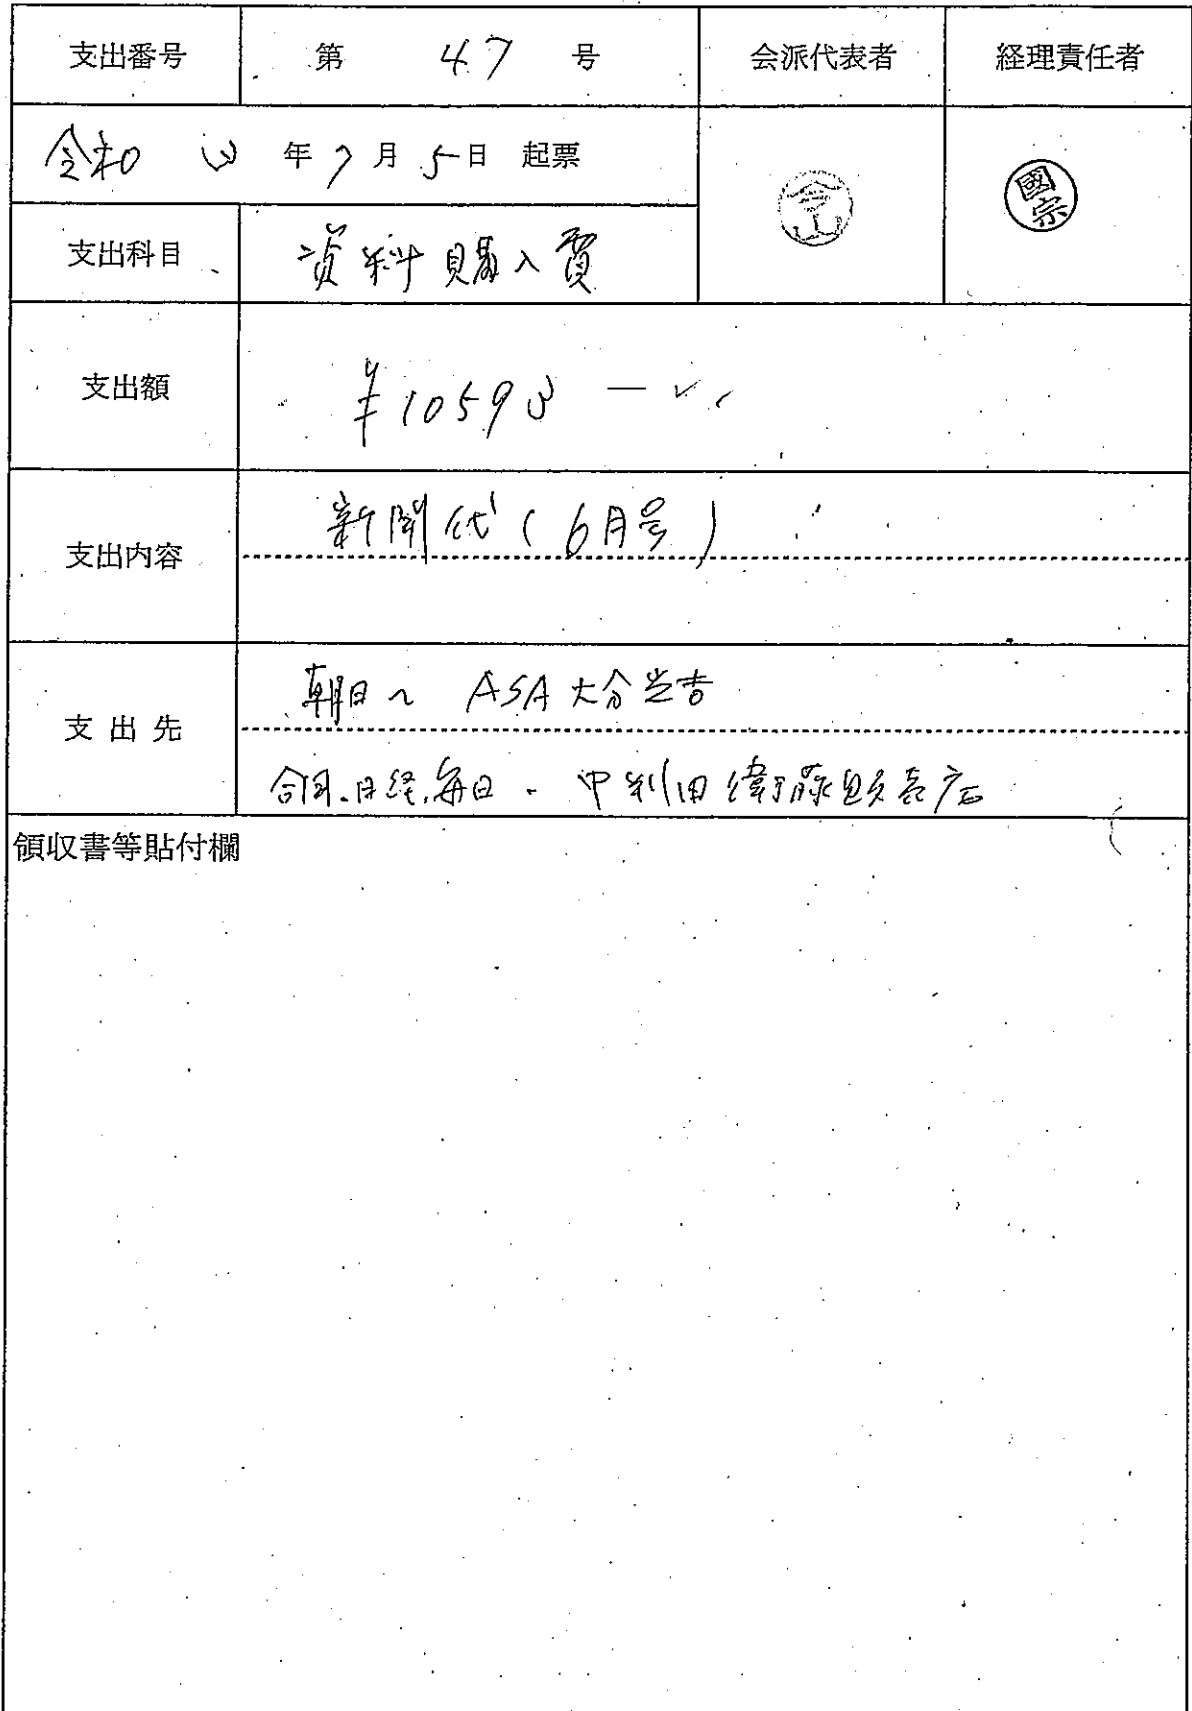 支出番号 第 47 号 会派代表者 経理責任者
令和 3 年 7 月 5 日 起票
國宗
支出科目 資料購入費
支出額 ¥10593 —
支出内容 新聞代(6月号)
支出先
朝日〜 ASA大分
合同.日経.毎日 - 中判田衛藤販売店
領収書等貼付欄